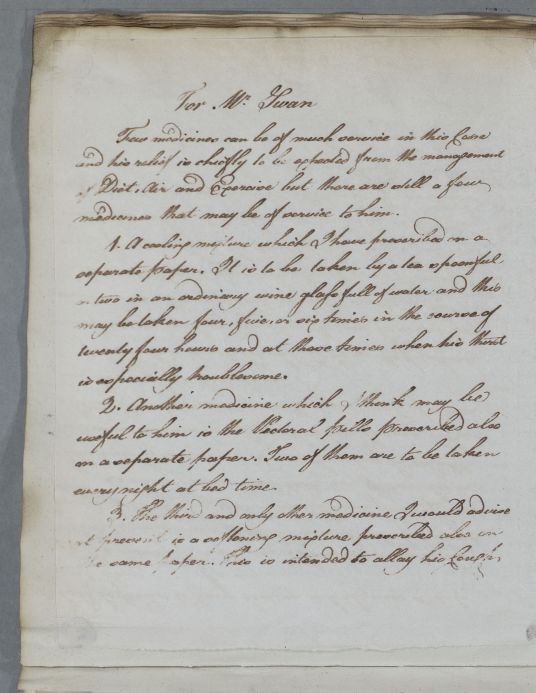 For Mr. Swan
Few medicines can be of much service in this Case
and his relief is chiefly to be expected from the management
of Diet, Air and Exercise but there are still a few
medicines that may be of service to him.
1. A cooling mixture which I have prescribed on a
separate paper. It is to be taken by a tea spoonful
or two in an ordinary wine glass full of water and this
may be taken four, five, or six times in the course of
twenty four hours and at those times when his thirst
is especially troublesome.
2. Another medicine which I think may be
useful to him is the Pectoral pills prescribed also
on a separate paper. Two of them are to be taken
every night at bed time.
3. The third and only other medicine I would advise
at present is a softening mixture prescribed also on
the same paper. This is intended to allay his Cough